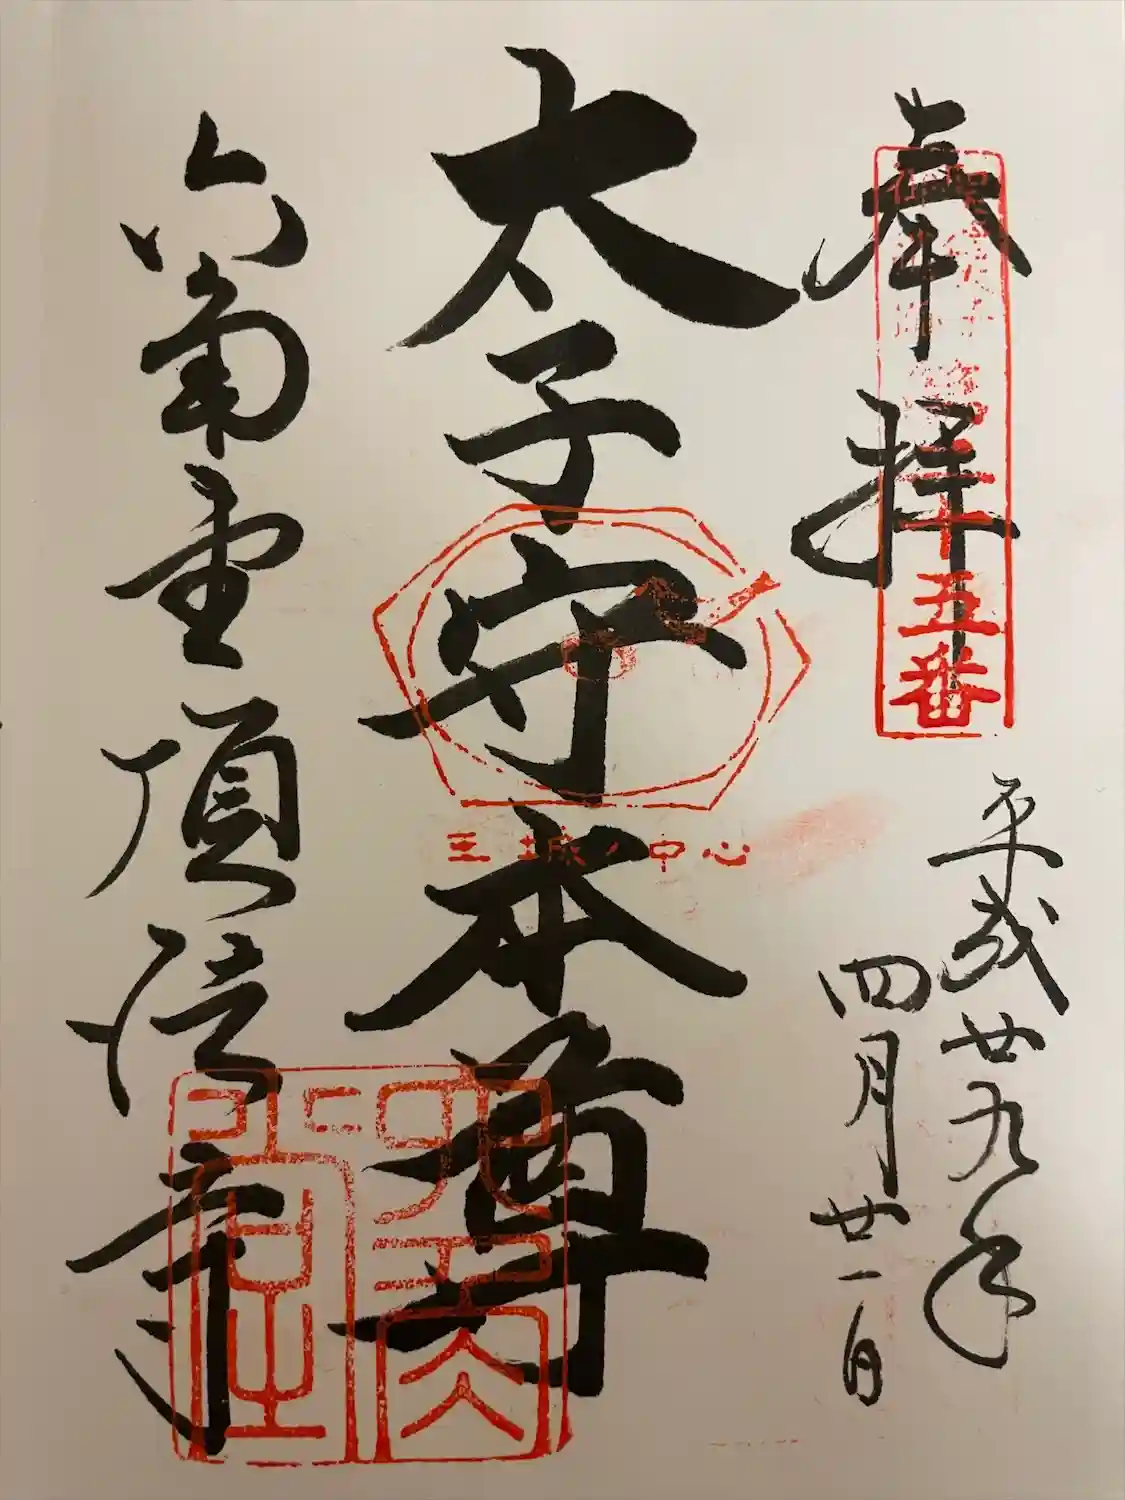 奉拝
五番
平成廿九年
四月廿一日
太子守本尊
王城ノ中心
六角堂頂法寺